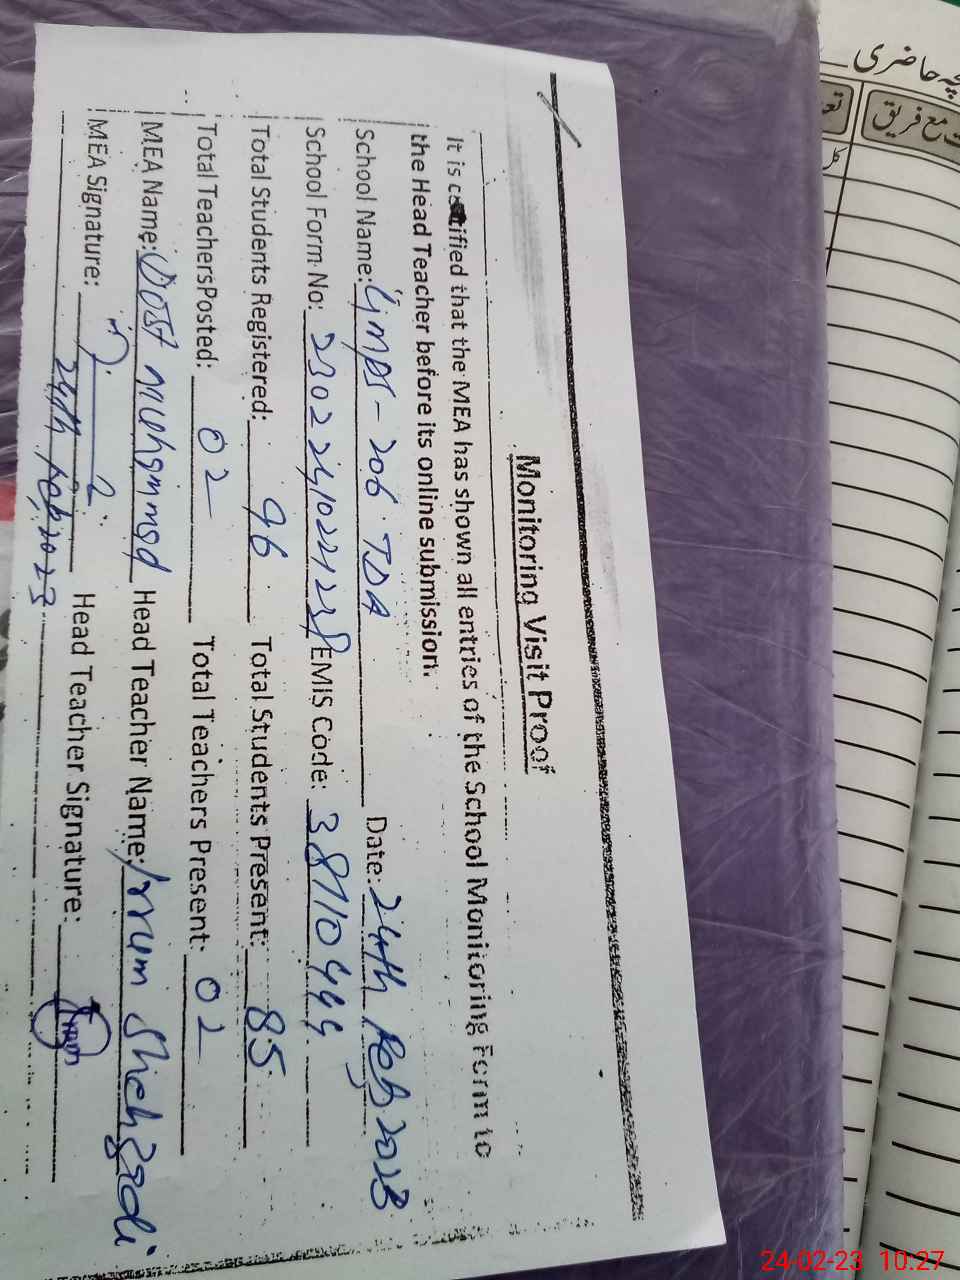 Monitoring Visit Proof
It is certified that the MEA has shown all entries of the School Monitoring Form to
the Head Teacher before its online submission.
School Name: GMPS-206 TDA Date: 24th Feb 2023
School Form No: EMIS Code: 38710449
Total Students Registered: 96 Total Students Present: 85
Total TeachersPosted: 02 Total Teachers Present: 02
MEA Name: Dost Muhammad Head Teacher Name: Irrum Shehzadi
MEA Signature: Head Teacher Signature: Irrum
24th Feb, 2023
چہ حاضری
مع فریق
تعد
کل
24-02-23 10:27